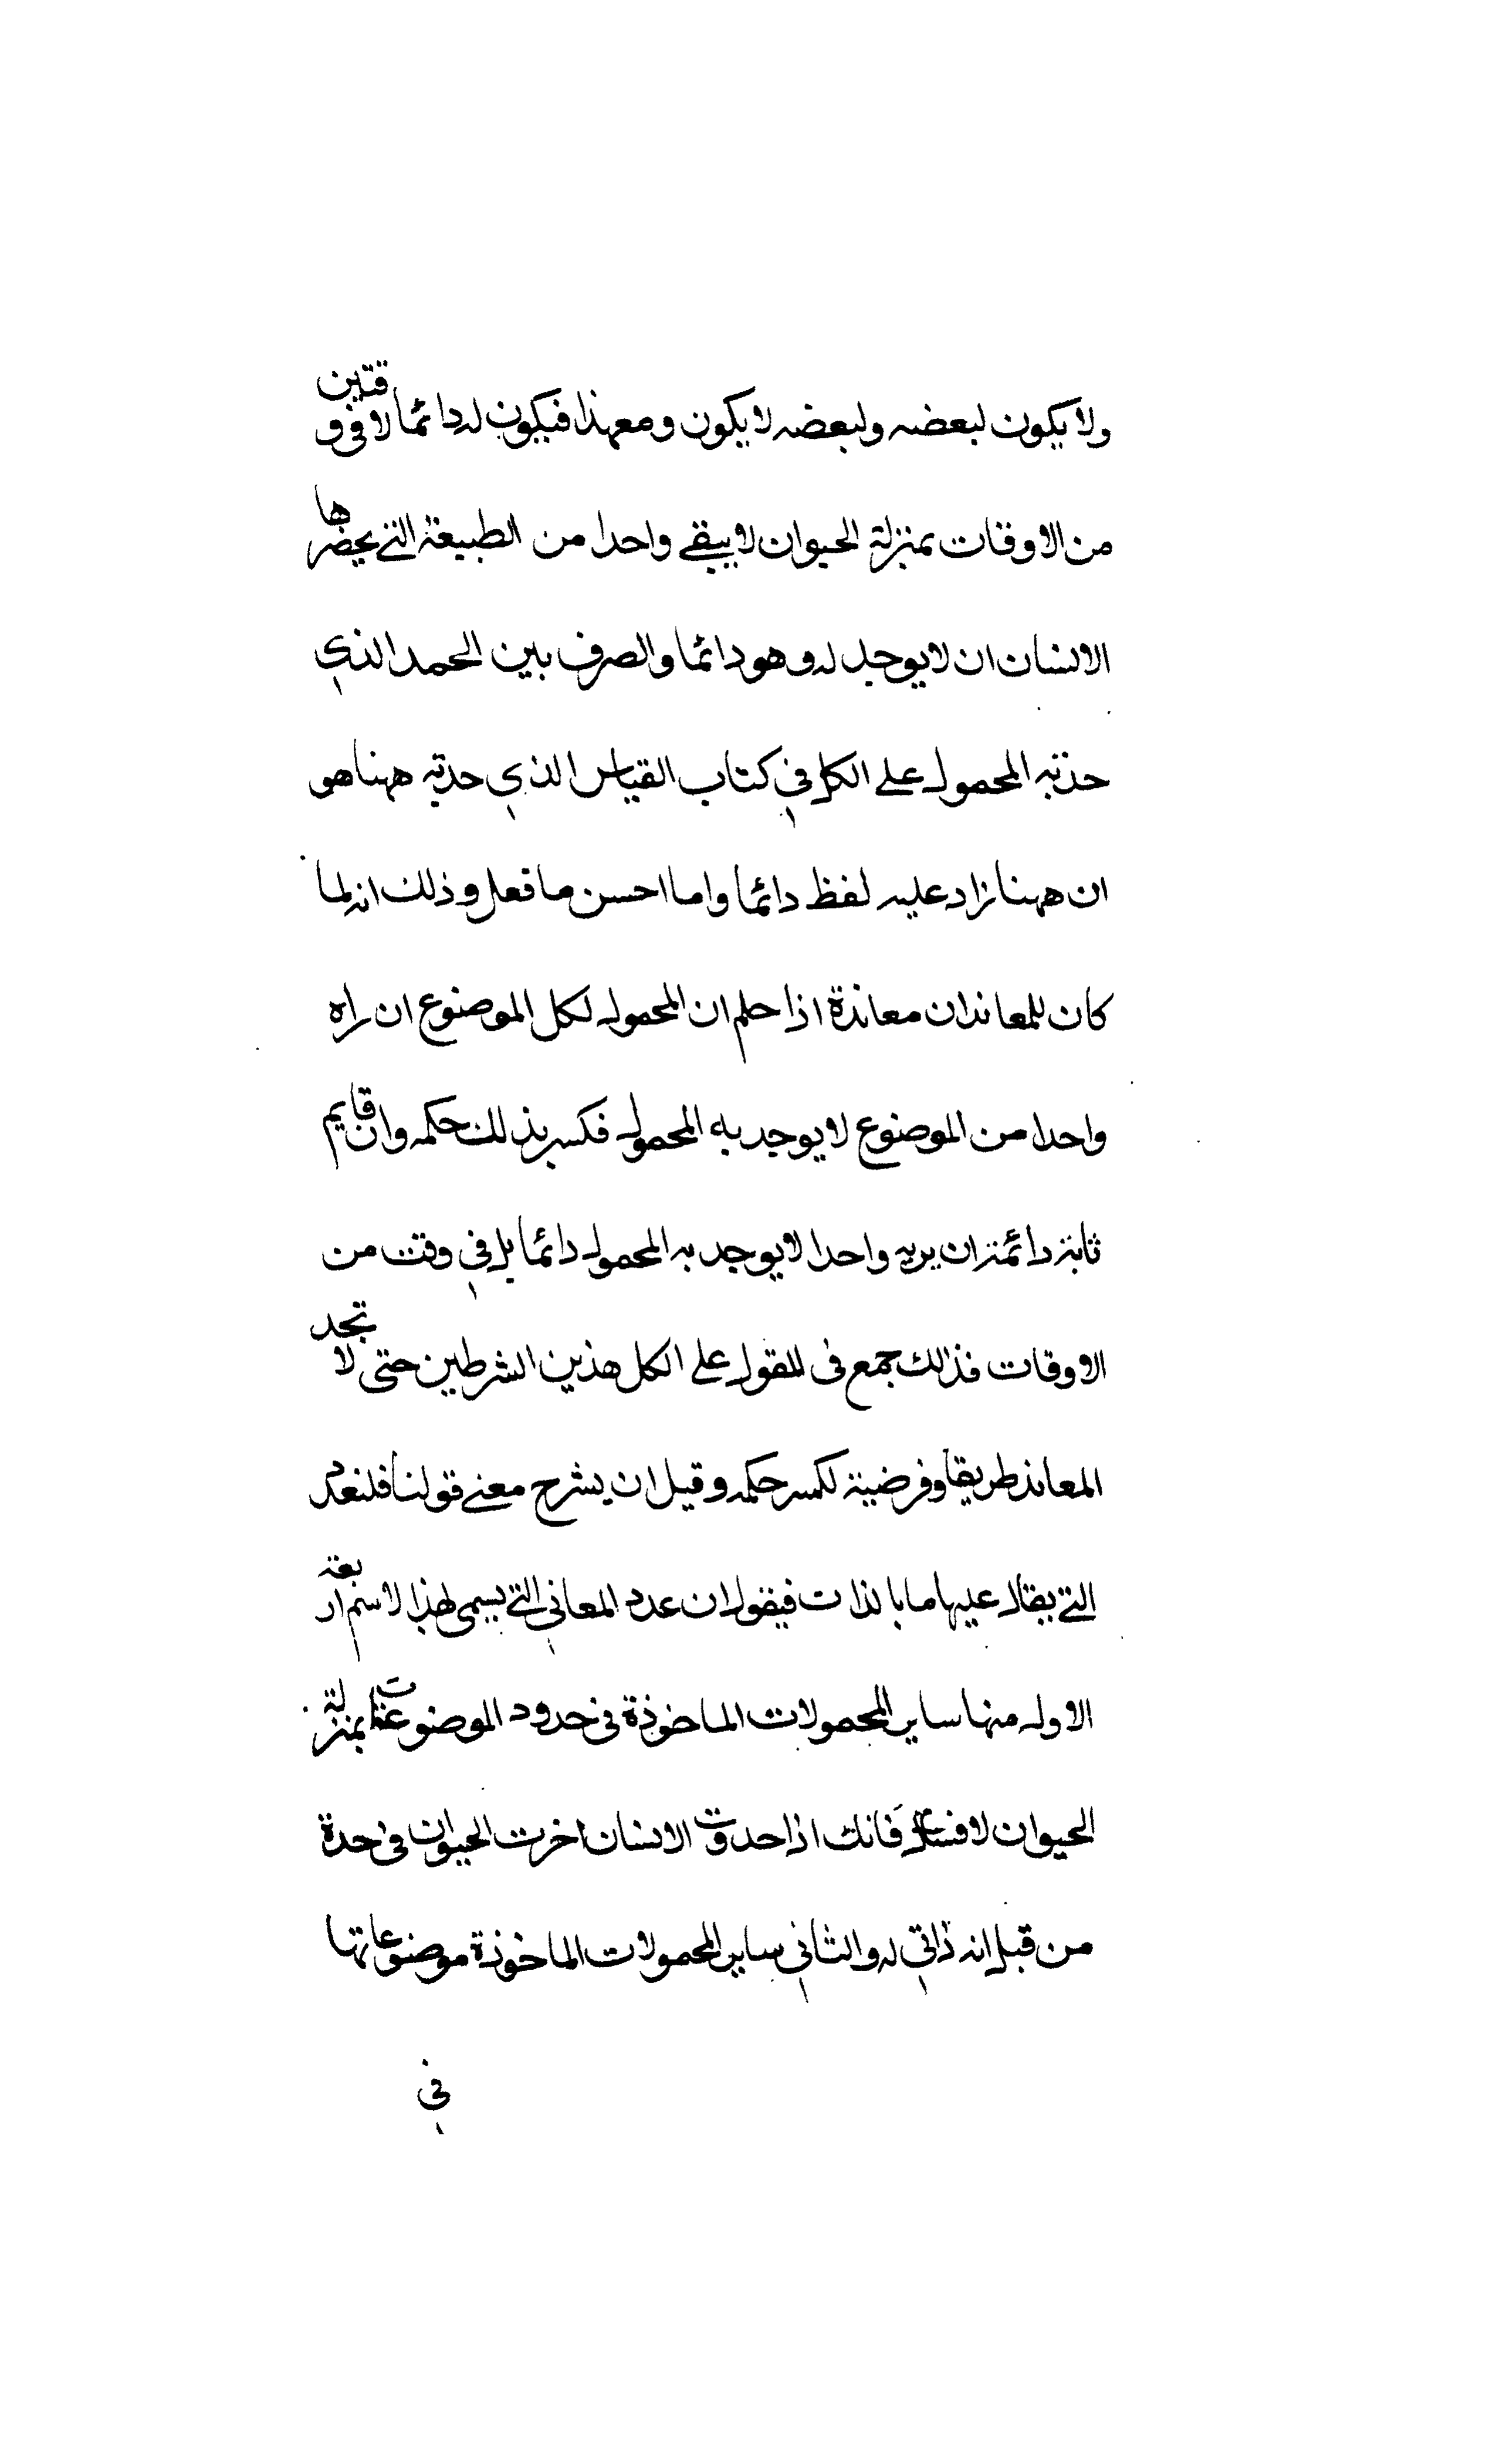 ولا يكون لبعضه ولبعضه لا يكون ومعهذا فيكون له دائما لا في وقتين
من الاوقات بمنزلة الحيوان لا يبقى واحدا من الطبيعة التي يحضرها
الانسان ان لا يوجد له وهو دائما والصرف بين الحمد الذي
حدته المحمول على الكل في كتاب القياس الذي حدته ههنا هو
ان ههنا زاد عليه لفظ دائما واما احسن ما فعل وذلك انه لما
كان للمعاندان معاندة اذا حلم ان المحمول لكل الموضوع ان راه
واحدا من الموضوع لا يوجد به المحمول فكسر بذلك حكمه وان قايم
ثابتة دائمة ان يريه واحدا لا يوجد به المحمول دائما بل في وقت من
الاوقات فذلك جمع في المقول على الكل هذين الشرطين حتى لا تجد
المعاند طريقا وفرضية لكسر حكمه وقيل ان يشرح معنى قولنا فلنعدد
التي يقال عليها ما بالذات فيقول ان عدد المعاني التي يسمى لهذا لاسم اربعة
الاول منها ساير المحمولات الماخوذة في حدود الموضوعات بمنزلة
الحيوان لا فانك اذا حدوت الانسان اخرت الحيوان في حدة
من قبل انه ذاتي له والثاني ساير المحمولات الماخوذة موضوعاتها
في